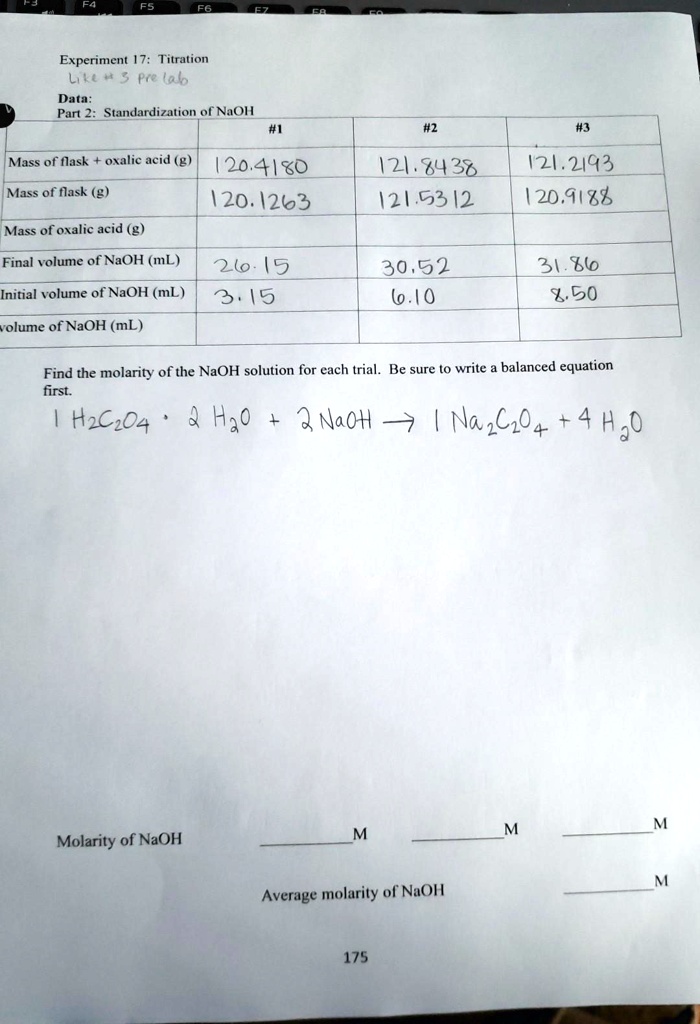 F3 F4 F5 F6 F7 F8 F9
Experiment 17: Titration
Like # 3 Pre lab
Data:
Part 2: Standardization of NaOH
#1 #2 #3
Mass of flask + oxalic acid (g) 120.4180 121.8438 121.2193
Mass of flask (g) 120.1263 121.5312 120.9188
Mass of oxalic acid (g)
Final volume of NaOH (mL) 26.15 30.52 31.86
Initial volume of NaOH (mL) 3.15 6.10 8.50
volume of NaOH (mL)
Find the molarity of the NaOH solution for each trial. Be sure to write a balanced equation
first.
1 H2C2O4 · 2 H2O + 2 NaOH → 1 Na2C2O4 + 4 H2O
Molarity of NaOH ____ M ____ M ____ M
Average molarity of NaOH ____ M
175